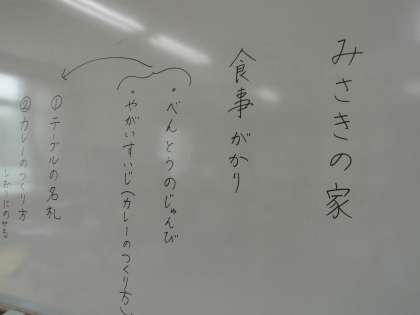 みさきの家
食事がかり
・べんとうのじゅんび
・やがいすいじ(カレーのつくり方)
①テーブルの名札
②カレーのつくり方
しおりにのせる